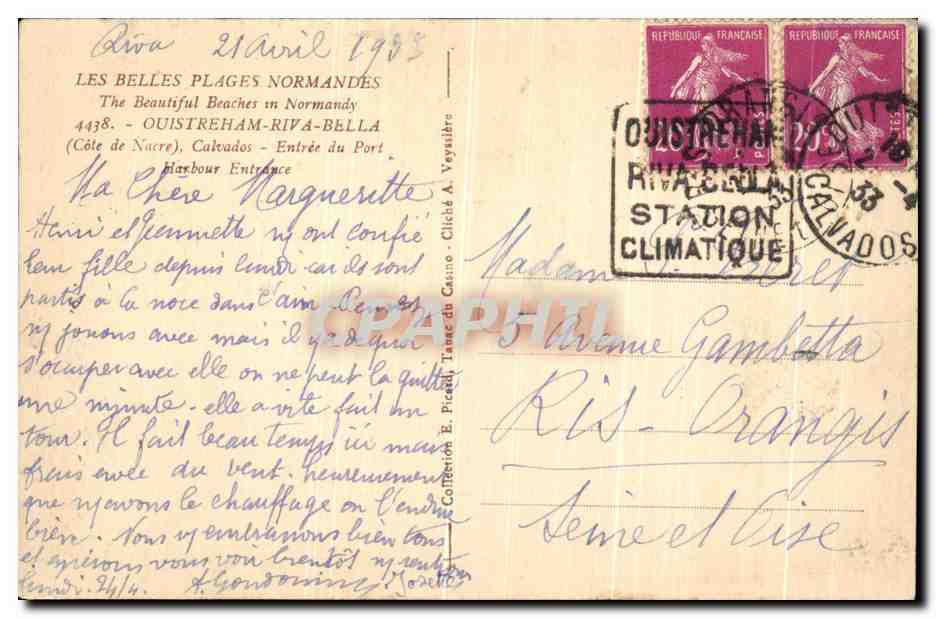 Riva 21 Avril 1933
LES BELLES PLAGES NORMANDES
The Beautiful Beaches in Normandy
4438. - OUISTREHAM-RIVA-BELLA
(Côte de Nacre), Calvados - Entrée du Port
Harbour Entrance
Ma Chère Margueritte
Henri et Jeannette ns ont confié
leur fille depuis lundi car ils sont
partis à la noce dans l'ain
ns jouons avec mais il y a de quoi
s'occuper avec elle on ne peut la quitter
une minute - elle a vite fait un
tour. Il fait beau temps ici mais
frais avec du vent. heureusement
que ns avons le chauffage on l'endure
bien. Nous vs embrassons bien tous
et espérons vous voir bientôt ns rentrons
lundi. 24/4. Josette
Collection E. Picard, Tabac du Casino - Cliché A. Veyssière
REPUBLIQUE FRANÇAISE
20c
POSTES
REPUBLIQUE FRANÇAISE
20c
POSTES
OUISTREHAM
RIVA-BELLA
STATION
CLIMATIQUE
CALVADOS
33
Madame
5 Avenue Gambetta
Ris-Orangis
Seine et Oise
CPAPHIL